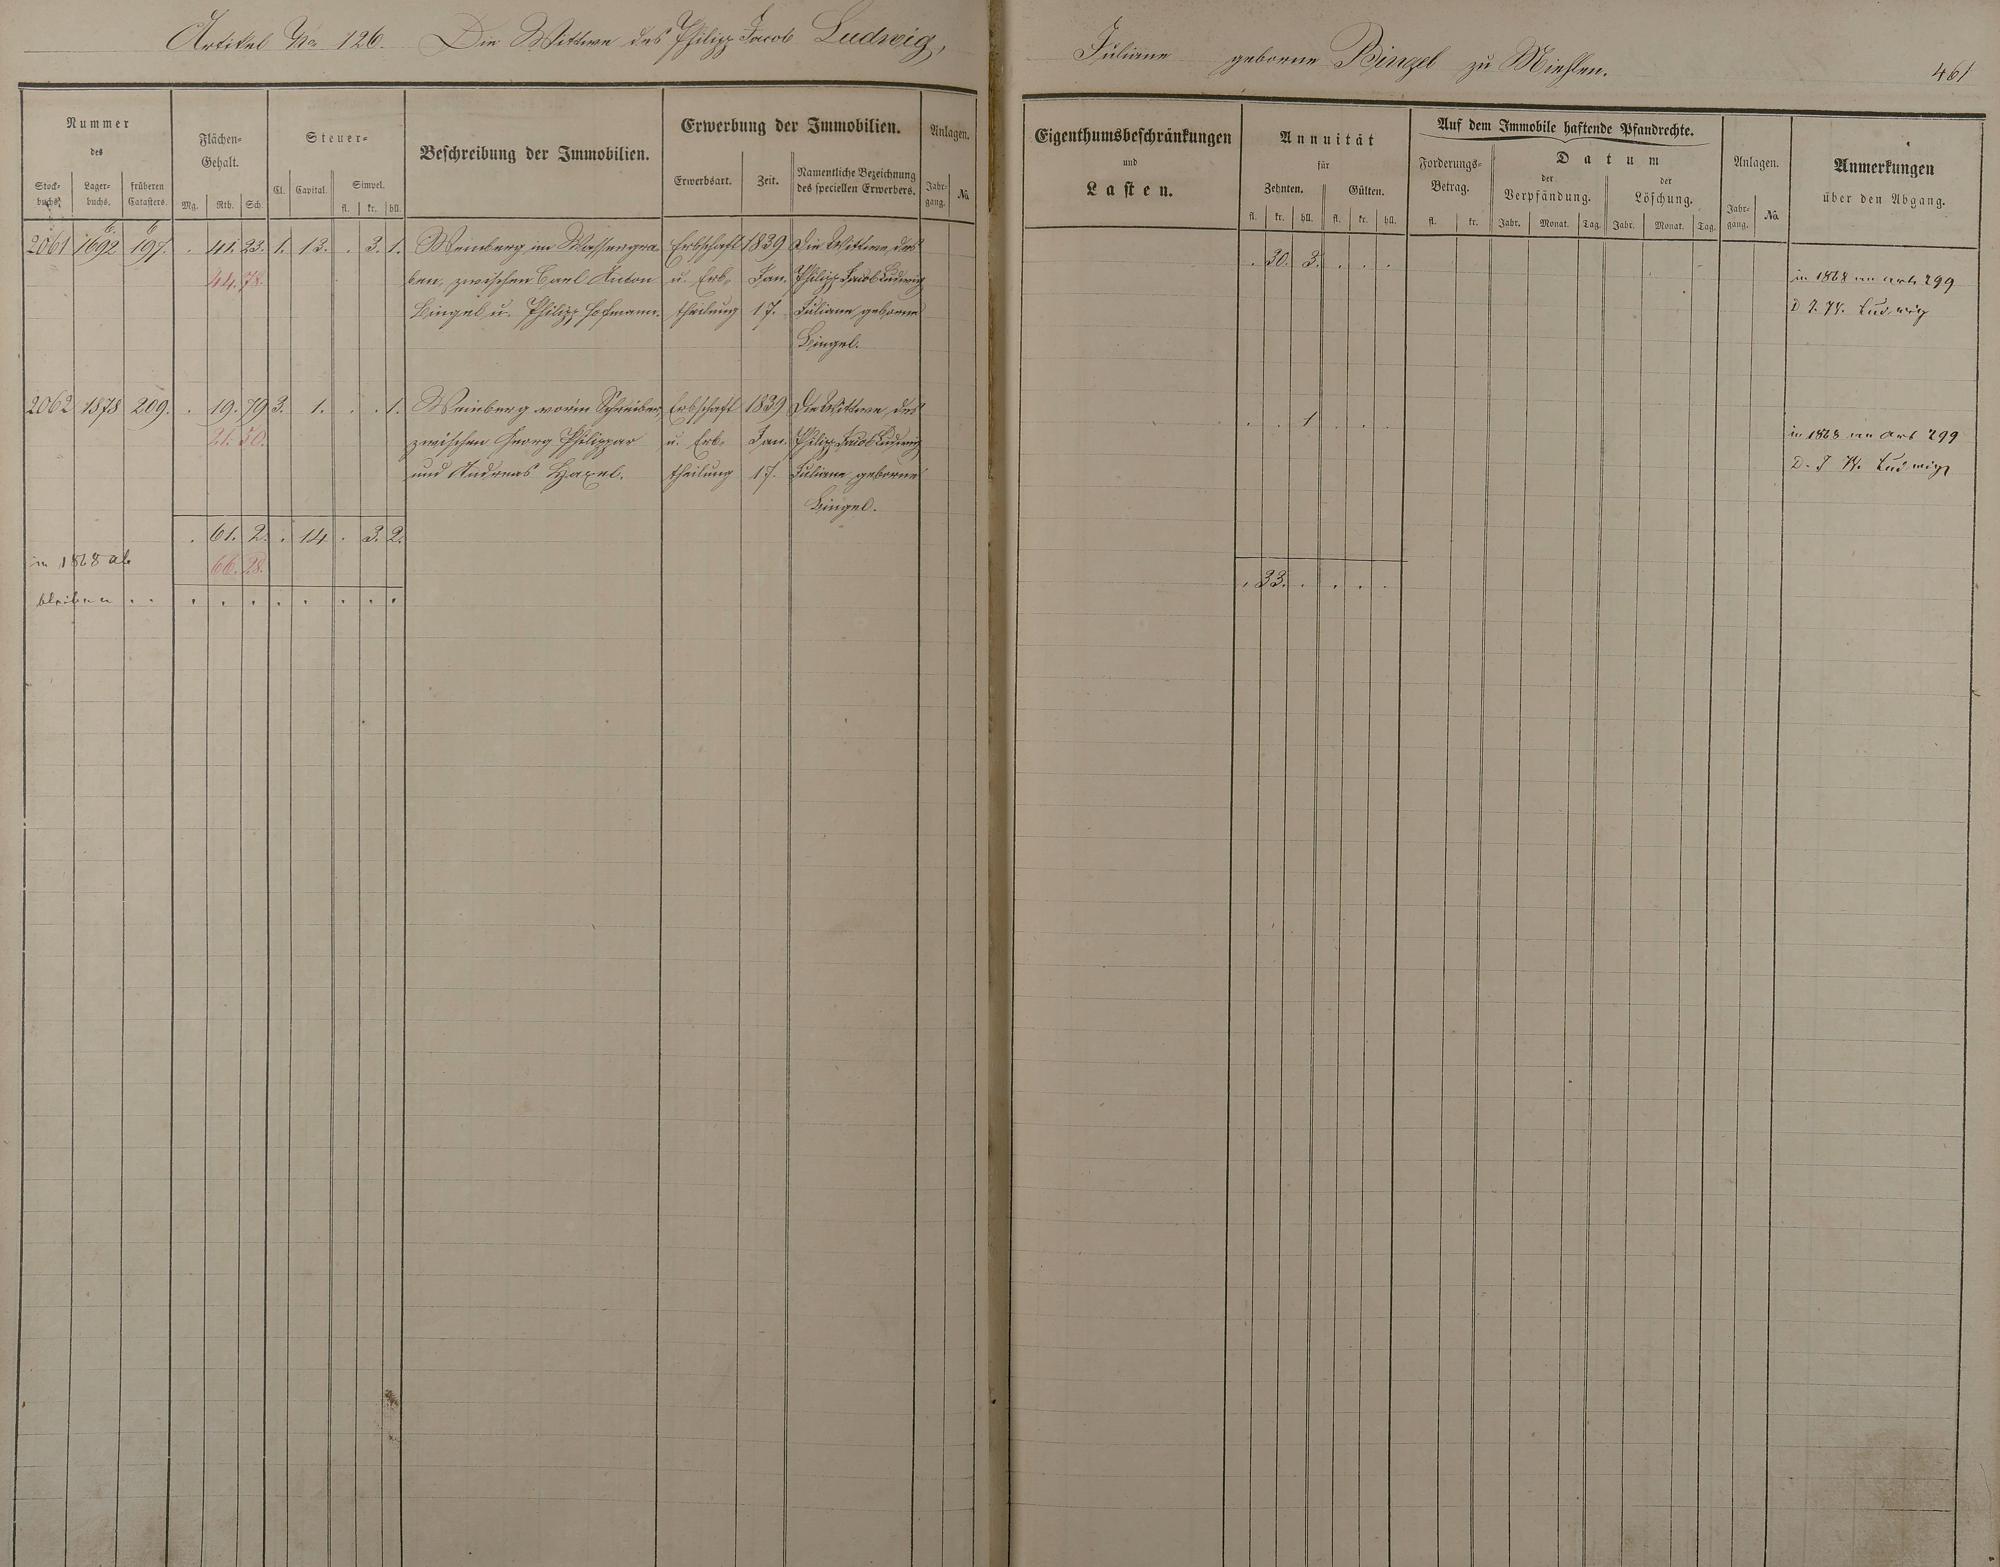 Artikel No 126. Die Wittwe des Philipp Jacob Ludwig,
Juliane geborne Bingel zu Miehlen.
461
Nummer
des
Stock-
buchs.
Lager-
buchs.
früheren
Catasters.
Flächen-
Gehalt.
Mg. Rth. Sch.
Steuer-
Cl. Capital. Simpel.
fl. kr. hll.
Beschreibung der Immobilien.
Erwerbung der Immobilien.
Erwerbsart. Zeit.
Namentliche Bezeichnung
des speciellen Erwerbers.
Anlagen.
Jahr-
gang. No.
Eigenthumsbeschränkungen
und
Lasten.
Annuität
für
Zehnten. Gülten.
fl. kr. hll. fl. kr. hll.
Auf dem Immobile haftende Pfandrechte.
Forderungs-
Betrag.
fl. kr.
Datum
der
Verpfändung.
der
Löschung.
Jahr. Monat. Tag. Jahr. Monat. Tag.
Anlagen.
Jahr-
gang. No.
Anmerkungen
über den Abgang.
6. 6
2061 1692 197. . 41. 23. 1. 13. . 3. 1. Weinberg im Wassergra- Erbschaft 1839 Die Wittwe des
44. 78. ben, zwischen Carl Anton u. Erb- Jan. Philipp Jacob Ludwig
Bingel u. Philipp Hofmann. theilung 17. Juliane, geborne
Bingel.
. 30. 3. . . .
in 1868 an art 299
Ludwig
2062 1878 209. . 19. 79 3. 1. . . 1. Weinberg vorm Schreiber, Erbschaft 1839 Die Wittwe des
21. 50. zwischen Georg Philippar u. Erb- Jan. Philipp Jacob Ludwig
und Andreas theilung 17. Juliane, geborne
Bingel.
. . 1 . . .
in 1868 an art 299
Ludwig
. 61. 2. . 14 . 3. 2.
in 1868 ab 66. 28.
bleiben . . . . . . . . . .
. 33. . . . .